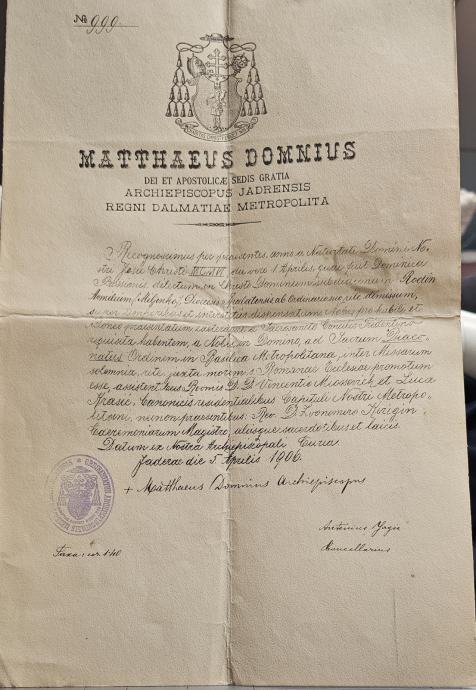 № 999.
MATTHAEUS DOMNIUS
DEI ET APOSTOLICÆ SEDIS GRATIA
ARCHIEPISCOPUS JADRENSIS
REGNI DALMATIAE METROPOLITA
Recognoscimus per praesentes, anno a Nativitate Domini No-
stri Jesu Christi die vero 1 Aprilis, quae fuit Dominica
Passionis, dilectum in Christo Dominum subdiaconum
Dioecesis Spalatensis ab Ordinario suo rite dimissum,
super et interstitiis dispensatum Nobis pro habili et
idoneo praesentatum caeteraque a Sacrosancto Concilio Tridentino
requisita habentem, a Nobis in Domino, ad Sacrum Diaco-
natus Ordinem in Basilica Metropolitana, inter Missarum
solemnia, rite, juxta morem S. Romanae Ecclesiae promotum
esse, assistentibus Rmis D. D. Vincentio et Luca
Canonicis residentialibus Capituli Nostri Metropo-
litani, necnon praesentibus: Rev. D.
Caeremoniarum Magistro, aliisque sacerdotibus et laicis.
Datum ex Nostra Archiepiscopali Curia.
Jaderae die 5 Aprilis 1906.
+ Matthaeus Domnius Archiepiscopus
Antonius
Cancellarius
Taxa: cor. 1·40